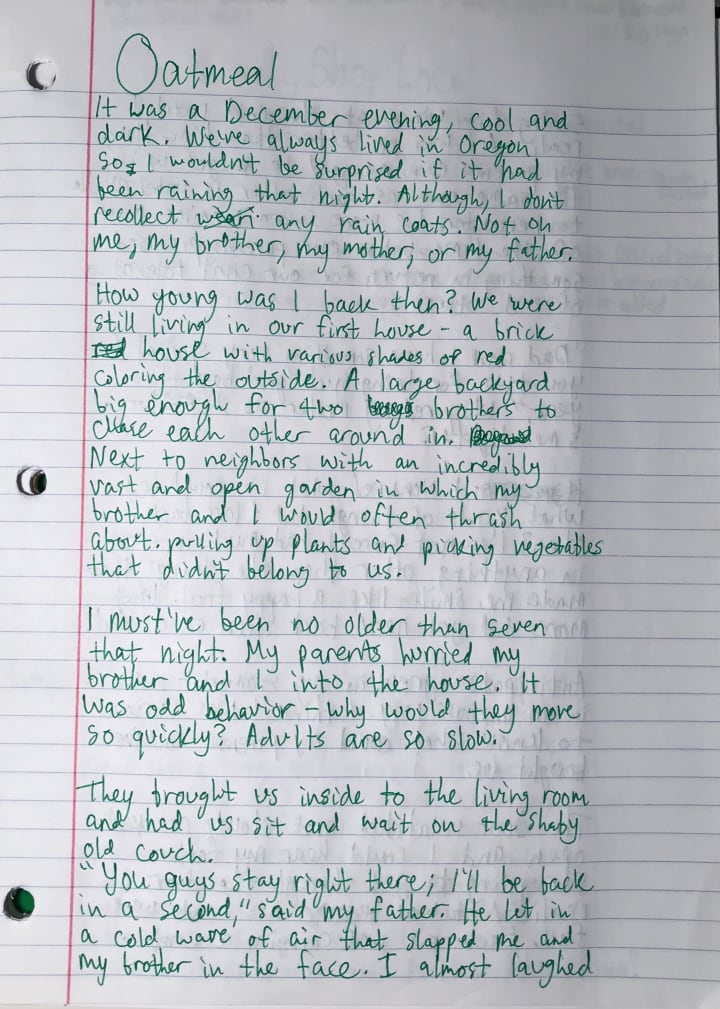 Oatmeal
It was a December evening, cool and
dark. We've always lived in Oregon
so, I wouldn't be surprised if it had
been raining that night. Although, I don't
recollect any rain coats. Not on
me, my brother, my mother, or my father.
How young was I back then? We were
still living in our first house - a brick
house with various shades of red
coloring the outside. A large backyard
big enough for two brothers to
chase each other around in.
Next to neighbors with an incredibly
vast and open garden in which my
brother and I would often thrash
about. pulling up plants and picking vegetables
that didn't belong to us.
I must've been no older than seven
that night. My parents hurried my
brother and I into the house. It
was odd behavior - why would they move
so quickly? Adults are so slow.
They brought us inside to the living room
and had us sit and wait on the shaby
old couch.
"You guys stay right there; I'll be back
in a second," said my father. He let in
a cold wave of air that slapped me and
my brother in the face. I almost laughed